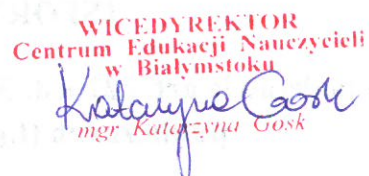 WICEDYREKTOR
Centrum Edukacji Nauczycieli
w Białymstoku
Katarzyna Gosk
mgr Katarzyna Gosk